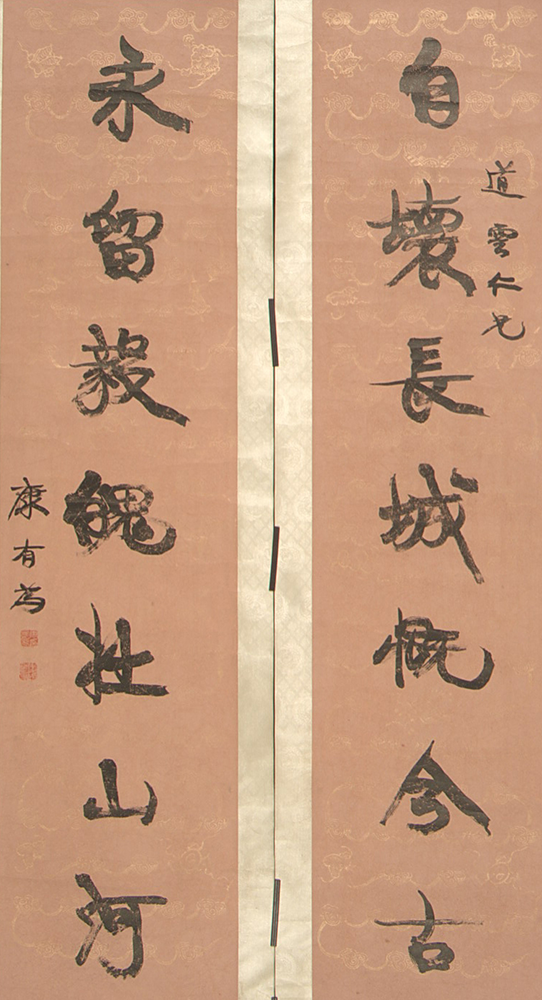 道雲仁兄
自壞長城慨今古
永留毅魄壯山河
康有為